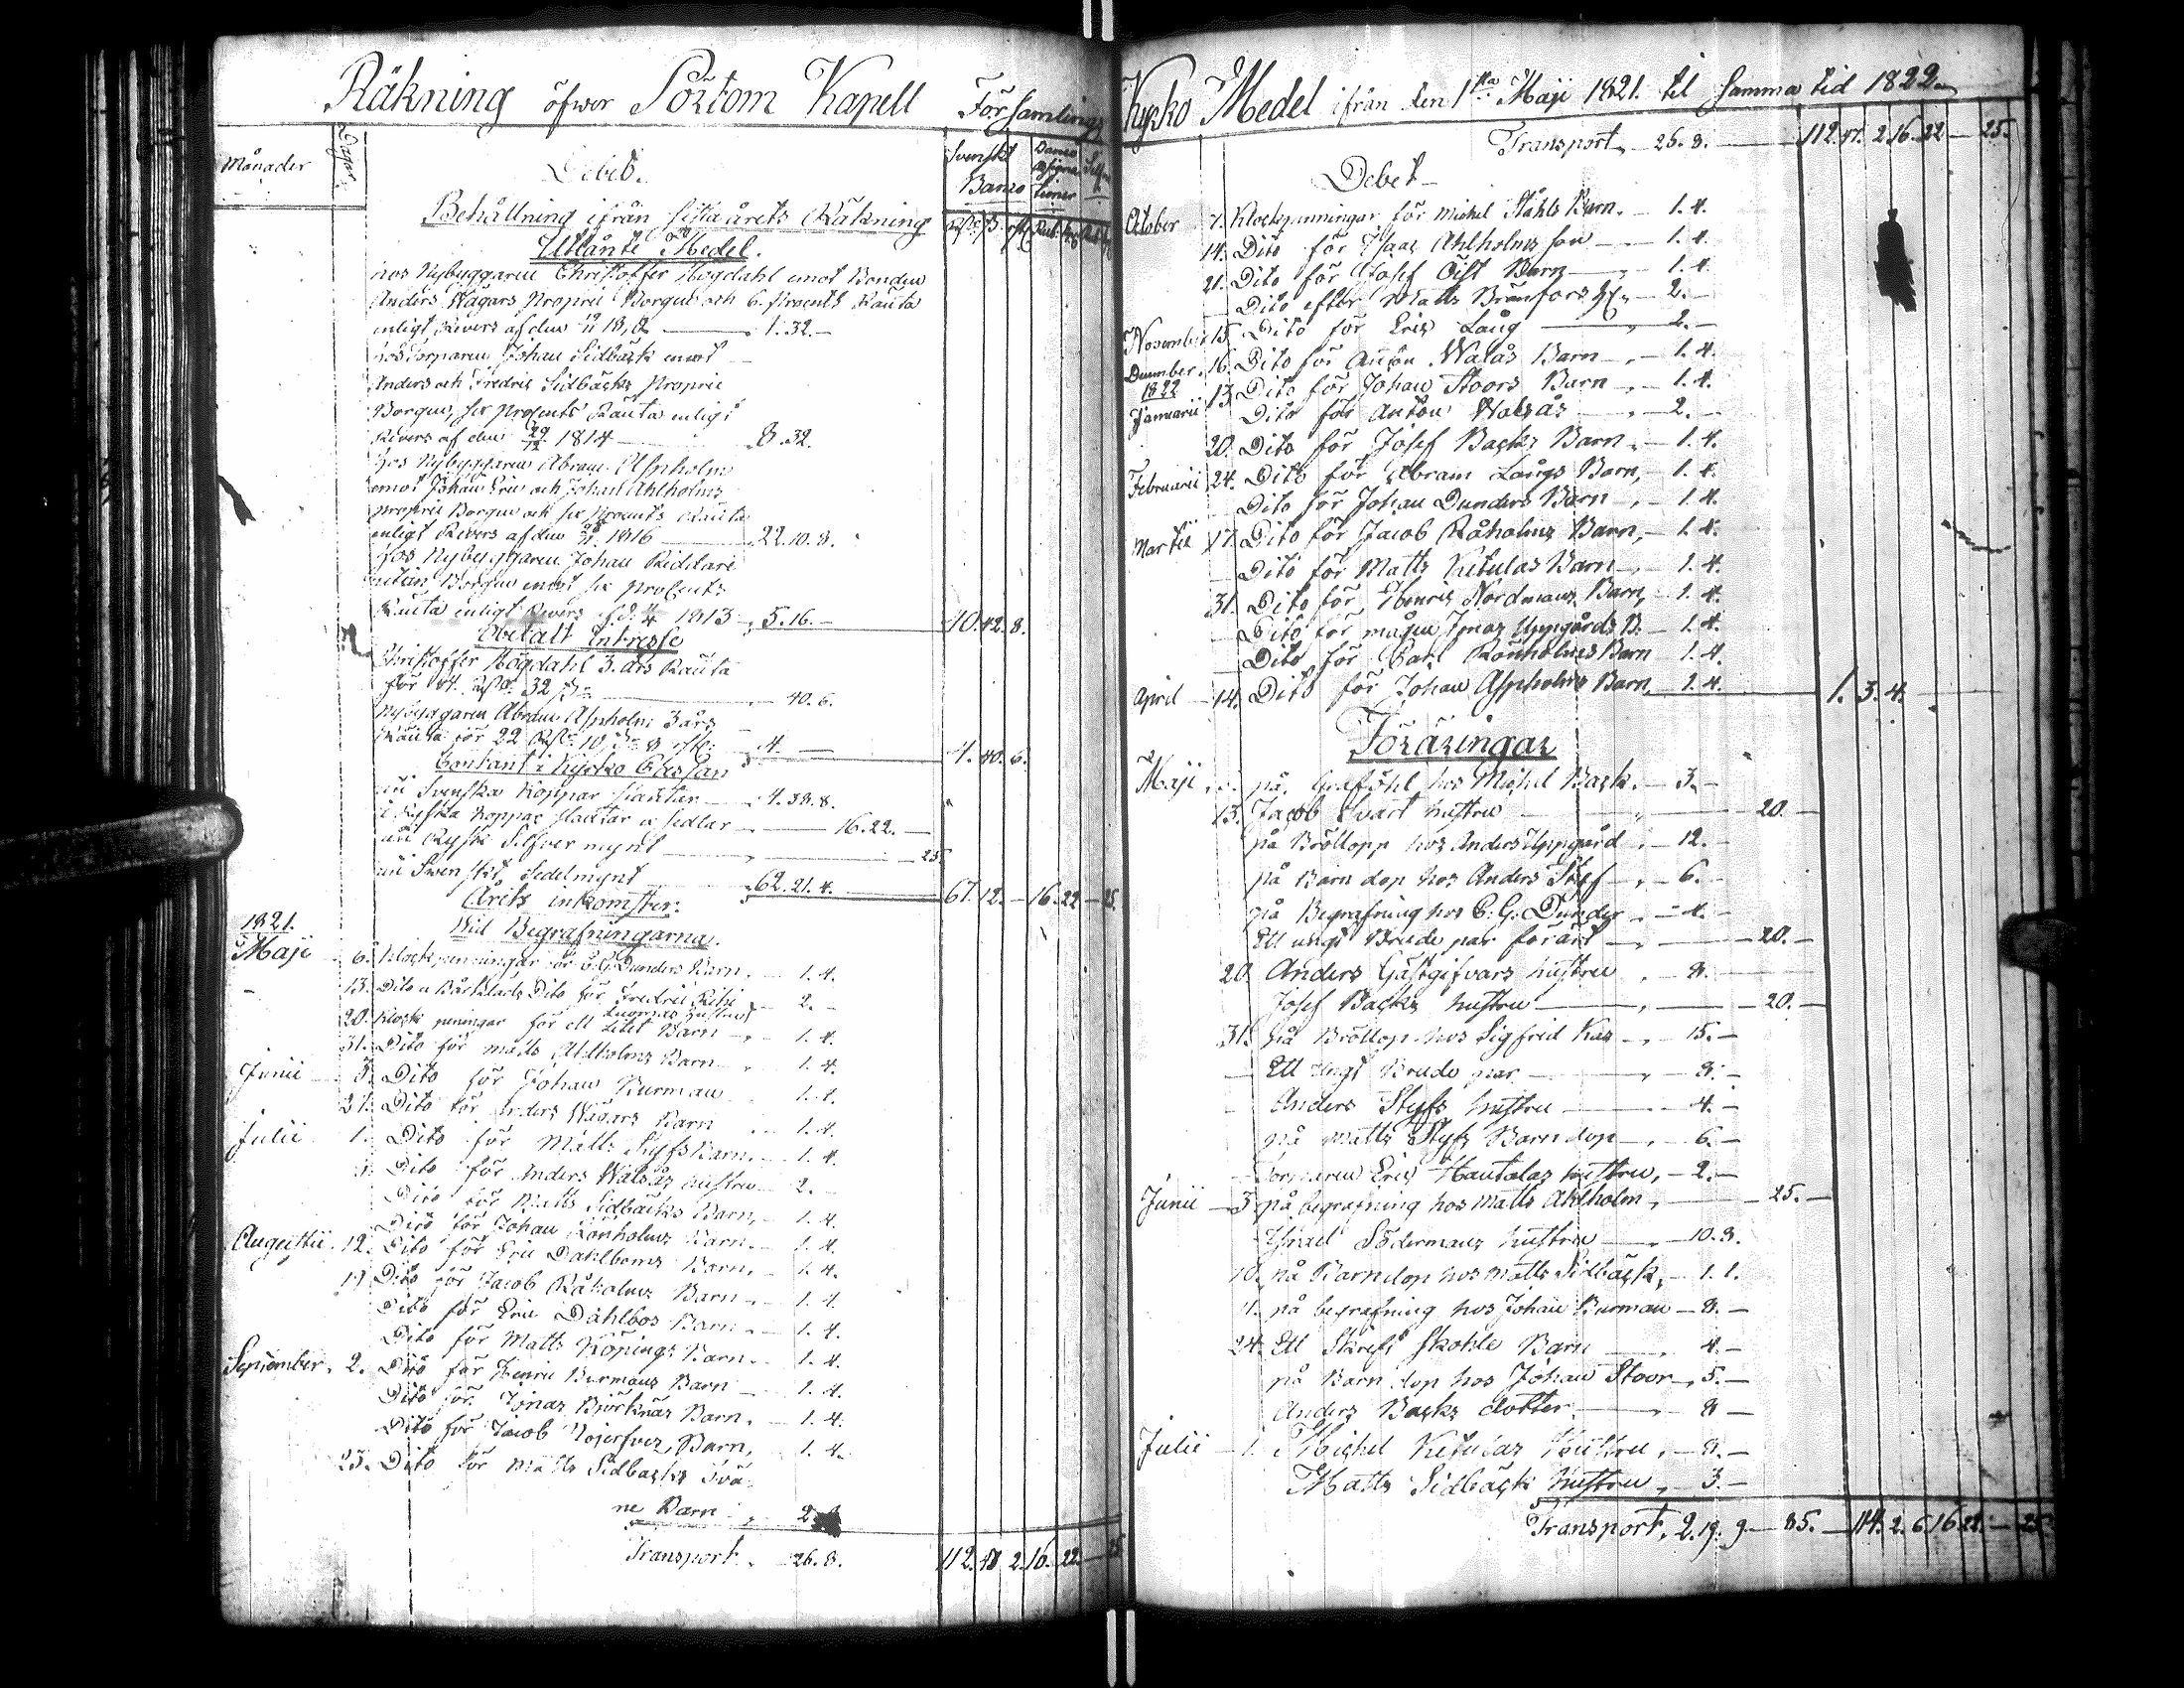 Räkning öfwer Pörtom Kapell Församlings
Månader Dagar
Debet.
Svenskt Banco
Banco Assignationer
Behållning ifrån sista årets Räkning
Utlånte Medel.
hos Nybyggaren Christoffer Högdahl emot Bonden
Anders Wägars Proprie Borgen och 6. Procents Ränta
enligt Revers af den 1.32.-
hos Torparen Johan Sidbäck emot
Anders och Fredric Sidbäcks Proprie
Borgen, sex Procents Ränta enligt
Revers af den 29/12 1814 8.32.
hos Nybyggaren Abram Aspholm
emot Johan Eric och Johan Ahlholms
proprie Borgen och sex Procents Ränta
enligt Revers af den 1816 22.10.8.
hos Nybyggaren Johan Riddare
utan Borgen emot sex Procents
Ränta enligt Revers af d. 1813 5.16.- 40.42.8.
Obetalt Intresse
Christoffer Högdahl 3. års Ränta
för 32 40.6.
Nybyggaren Abram Aspholm 3 års
Ränta för 22 10 8 4. 4.40.6.
Contant i Kyrko Cassan
uti Svenska Koppar slantar 4.38.8.
i Ryska Koppar slantar o sedlar 16.22.-
uti Rysk Silfver mynt 25.
uti Swenskt Sedelmynt 62.21.4. 67.12.-16.22-25.
Årets inkomster.
Wid Begrafningarna.
1821.
Maji 6. Klockpenningar för C. G. Dunders Barn 1.4.
13. Dito o Bårklads Dito för Fredric Riihi
Luomas hustru 2.-
20. Klock peningar för ett Litet Barn 1.4.
31. Dito för Matts Ahlholms Barn 1.4.
Junii 3. Dito för Johan Burman 1.4.
24. Dito för Anders Wägars Barn 1.4.
Julii 1. Dito för Matts Styfs Barn. 1.4.
Dito för Anders Walsås hustru 2.
Dito för Matts Sidbäcks Barn, 1.4.
Dito för Johan Rönholms Barn. 1.4.
Augustii. 12. Dito för Eric Dahlboms Barn, 1.4.
19 Dito för Jacob Råholms Barn 1.4.
Dito för Eric Dahlbos Barn 1.4.
Dito för Matts Köpings Barn. 1.4.
September. 2. Dito för Henric Burmans Barn 1.4.
Dito för Jonas Björknäs Barn. 1.4.
Dito för Jacob Barn, 1.4.
23. Dito för Matts Sidbäcks Svä-
ne Barn 2.
Transport 26.8. 112.47 2.16.22-25
Kyrko Medel ifrån den 1sta Maji 1821. til Samma tid 1822.
Transport 26.8. 112.47.2.16.22-25.
Debet
October 7. Klockpenningar för Michel Ståhls Barn. 1.4.
14. Dito för Isaac Ahlholms son 1.4.
21. Dito för Josef Öist Barn 1.4.
Dito efter Matts Brännfors 2.-
November 15. Dito för Eric Lång 2.-
December. 16. Dito för Anton Walsås Barn 1.4.
1822
Januarii 13 Dito för Johan Stoors Barn 1.4.
Dito för Anton Walsås 2.-
20. Dito för Josef Backs Barn. 1.4.
Februarii 24. Dito för Abram Långs Barn, 1.4.
Dito för Johan Dunders Barn 1.4.
Martii 17. Dito för Jacob Råholms Barn, 1.4.
Dito för Matts Ketulas Barn 1.4.
31. Dito för Henric Nordmans Barn, 1.4.
Dito för mågen Jonas Uppgårds B. 1.4.
Dito för Carl Rönholms Barn 1.4.
April 14. Dito för Johan Aspholms Barn 1.4. 1.3.4.
Föräringar
Maji på Graföhl hos Michel Back. 3.-
13. Jacob Svart hustru 20.-
på Bröllopp hos Anders Uppgård 12.-
på Barn dop hos Anders Styf 6.-
på Begrafning hos C: G: Dunder 4.-
Ett ungt Brude par förärt 20.-
20. Anders Gästgifvars hustru 8.
Josef Backs hustru 20.-
31. på Bröllop hos Sigfrid Kas 15.-
Ett ungt Brude par 8.-
Anders Styfs hustru 4.-
på Matts Styfs Barndop 6.-
Torparen Eric Hautalas hustru, 2.-
Junii 3 på begrafning hos Matts Ahlholm, 25.-
Israel Södermans hustru 10.8.
10. på Barndop hos Matts Sidbäck, 1.1.
på begrafning hos Johan Burman 8.-
24. Ett Skrift skohle Barn 4.-
på Barn dop hos Johan Stoor 5.-
Anders Backs dotter 8-
Julii 1. Michel Ketulas hustru, 8.-
Matts Sidbäcks hustru, 3.-
Transport, 2.19.9. 85.- 114.2.6.16.22.-25